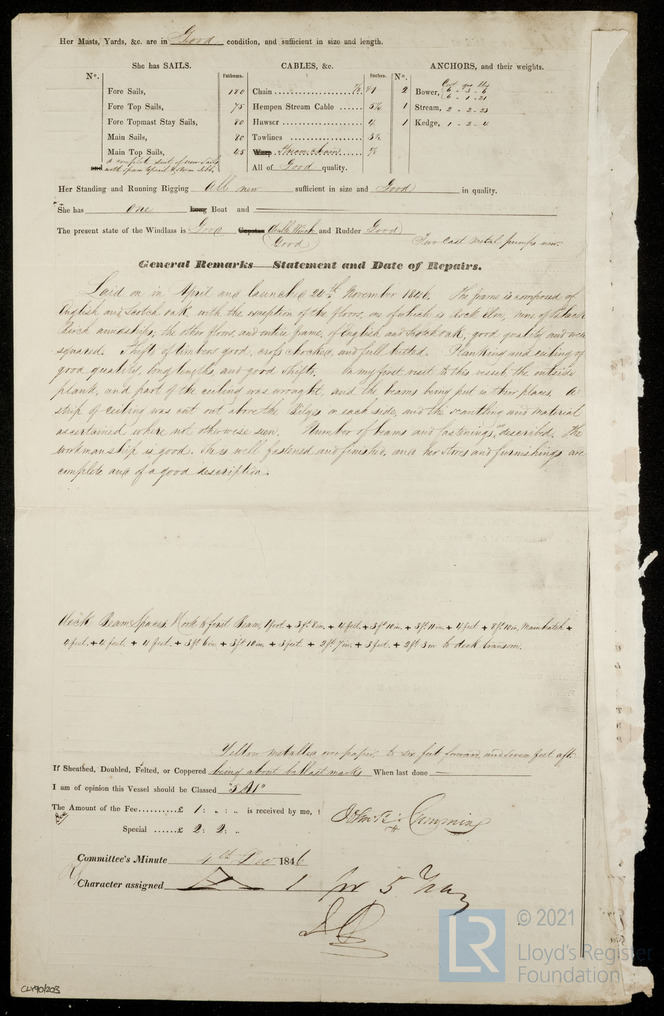 Her Masts, Yards, &c. are in Good condition, and sufficient in size and length.
She has SAILS. CABLES, &c. ANCHORS, and their weights.
No. Fathoms. Inches. No. Cwt qrs lbs
Fore Sails, 180 Chain 2 Bower, 6 - 3 - 6
6 - 1 - 21
Fore Top Sails, 75 Hempen Stream Cable 5½ 1 Stream, 2 - 2 - 23
Fore Topmast Stay Sails, 80 Hawser 4 1 Kedge, 1 - 2 - 4
Main Sails, 80 Towlines 3½
Main Top Sails, 45 Warp Stream chain
and a complete suit of new Sails All of Good quality.
Her Standing and Running Rigging all new sufficient in size and Good in quality.
She has one Long Boat and
The present state of the Windlass is Good Capstan and Rudder Good
Good Two cast metal pumps new.
General Remarks—Statement and Date of Repairs.
Laid on in April and launched 20th November 1846. The frame is composed of
English and Scotch oak, with the exception of the floors, one of which is Rock Elm, nine of Black
Birch amidships, the other floors, and entire frame, of English and Scotch oak, good quality and well
squared. Shifts of timbers good, cross chocked, and full butted. Planking and ceiling of
good quality, long lengths, and good shifts. On my first visit to this vessel the outside
plank, and part of the ceiling was wrought, and the beams being put in their places. A
strip of ceiling was cut out above the Bilges on each side, and the scantling and material
ascertained where not otherwise seen. Number of beams and fastenings as described. The
workmanship is good. She is well fastened and finished, and her Stores and furnishings are
complete and of a good description.
Deck Beam Spaces Hook to first Beam, 4 feet + 3ft 8in + 4 feet + 3ft 10in + 3ft 11in + 4 feet + 8ft 10in, Main hatch +
4 feet + 4 feet + 4 feet + 3ft 6in + 3ft 10in + 3 feet + 2ft 7in + 3 feet + 2ft 3in to deck transom.
Yellow metalled over paper, to six feet forward, and seven feet aft
If Sheathed, Doubled, Felted, or Coppered being about ballast marks When last done —
I am of opinion this Vessel should be Classed "5 A1"
The Amount of the Fee £ 1 : „ : „ is received by me,
Special £ 2 : 2 : „
Cumming
Committee's Minute 4th Dec 1846
Character assigned A 1 for 5 Years
CLY90/203
LR
© 2021
Lloyd's Register
Foundation